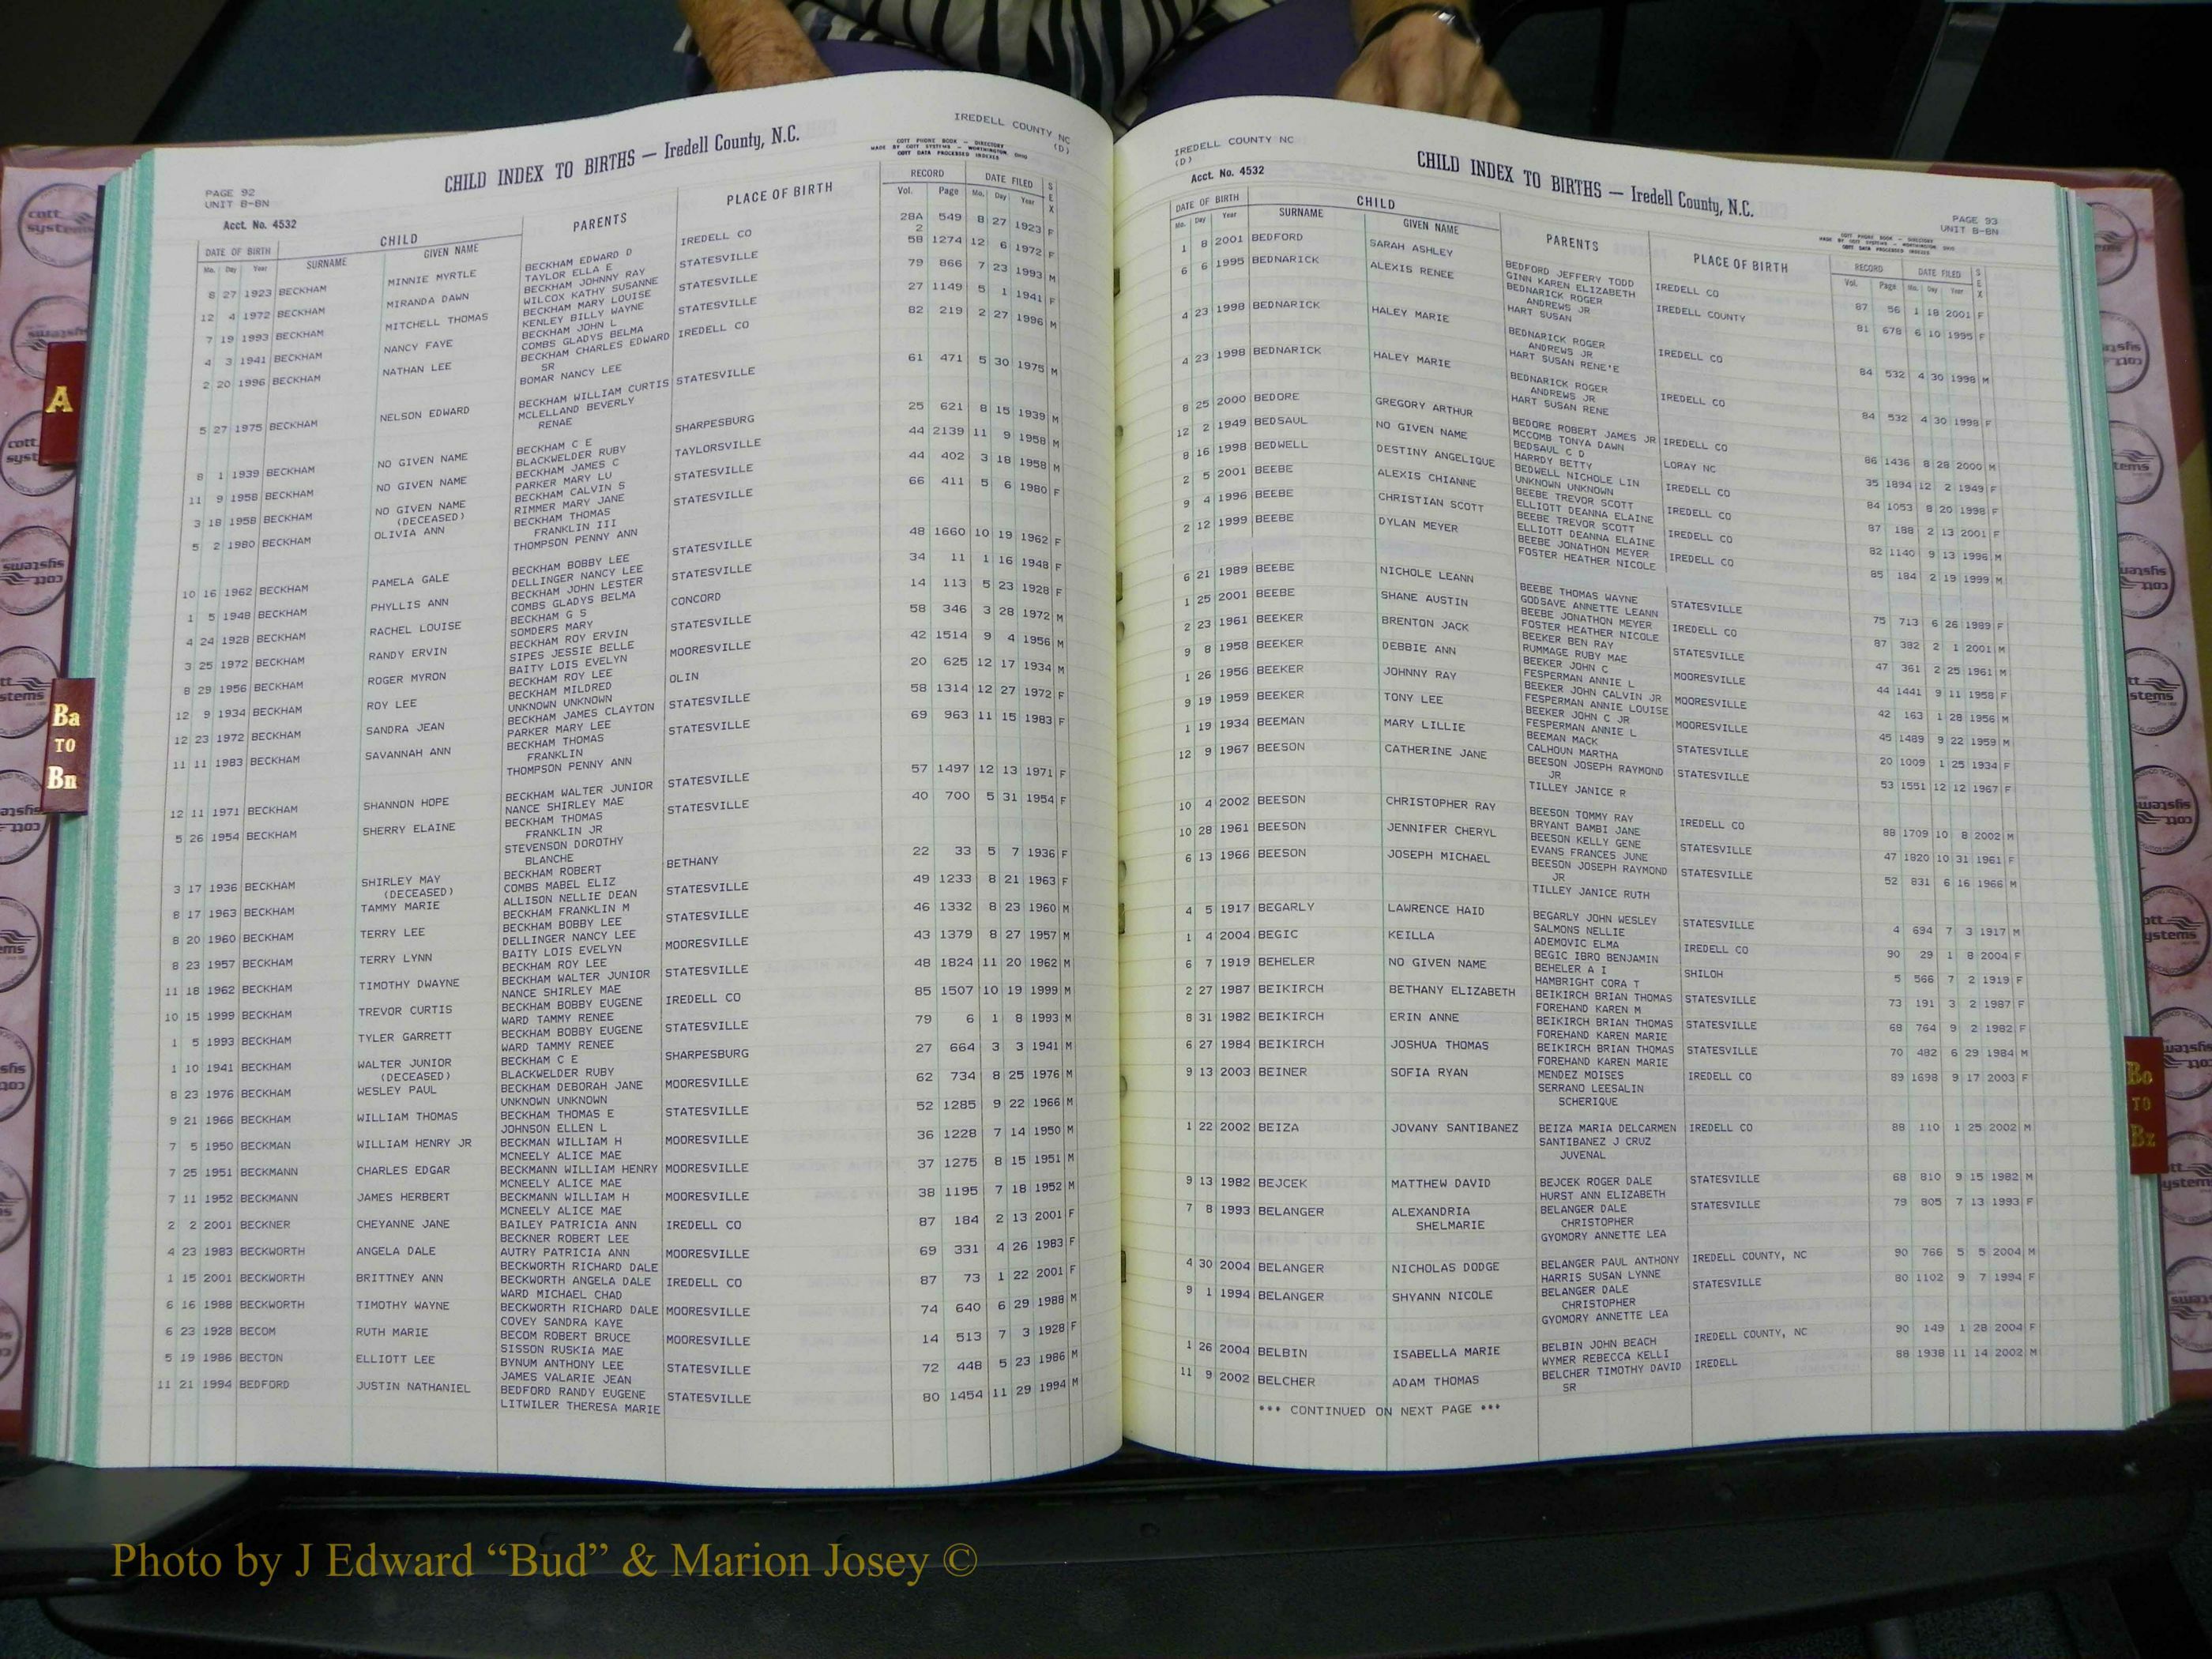 IREDELL COUNTY NC
(D)
CHILD INDEX TO BIRTHS — Iredell County, N.C.
COTT PHONE BOOK — DIRECTORY
MADE BY COTT SYSTEMS — WORTHINGTON, OHIO
COTT DATA PROCESSED INDEXES
PAGE 92
UNIT B-BN
Acct. No. 4532
DATE OF BIRTH CHILD PARENTS PLACE OF BIRTH RECORD DATE FILED SEX
Mo. Day Year SURNAME GIVEN NAME Vol. Page Mo. Day Year
8 27 1923 BECKHAM MINNIE MYRTLE BECKHAM EDWARD D IREDELL CO 28A 549 8 27 1923 F
TAYLOR ELLA E 2
12 4 1972 BECKHAM MIRANDA DAWN BECKHAM JOHNNY RAY STATESVILLE 58 1274 12 6 1972 F
WILCOX KATHY SUSANNE
7 19 1993 BECKHAM MITCHELL THOMAS BECKHAM MARY LOUISE STATESVILLE 79 866 7 23 1993 M
KENLEY BILLY WAYNE
4 3 1941 BECKHAM NANCY FAYE BECKHAM JOHN L STATESVILLE 27 1149 5 1 1941 F
COMBS GLADYS BELMA
2 20 1996 BECKHAM NATHAN LEE BECKHAM CHARLES EDWARD IREDELL CO 82 219 2 27 1996 M
SR
BOMAR NANCY LEE
5 27 1975 BECKHAM NELSON EDWARD BECKHAM WILLIAM CURTIS STATESVILLE 61 471 5 30 1975 M
MCLELLAND BEVERLY
RENAE
8 1 1939 BECKHAM NO GIVEN NAME BECKHAM C E SHARPESBURG 25 621 8 15 1939 M
BLACKWELDER RUBY
11 9 1958 BECKHAM NO GIVEN NAME BECKHAM JAMES C TAYLORSVILLE 44 2139 11 9 1958 M
PARKER MARY LU
3 18 1958 BECKHAM NO GIVEN NAME BECKHAM CALVIN S STATESVILLE 44 402 3 18 1958 M
(DECEASED) RIMMER MARY JANE
5 2 1980 BECKHAM OLIVIA ANN BECKHAM THOMAS STATESVILLE 66 411 5 6 1980 F
FRANKLIN III
THOMPSON PENNY ANN
10 16 1962 BECKHAM PAMELA GALE BECKHAM BOBBY LEE STATESVILLE 48 1660 10 19 1962 F
DELLINGER NANCY LEE
1 5 1948 BECKHAM PHYLLIS ANN BECKHAM JOHN LESTER STATESVILLE 34 11 1 16 1948 F
COMBS GLADYS BELMA
4 24 1928 BECKHAM RACHEL LOUISE BECKHAM G S CONCORD 14 113 5 23 1928 F
SOMDERS MARY
3 25 1972 BECKHAM RANDY ERVIN BECKHAM ROY ERVIN STATESVILLE 58 346 3 28 1972 M
SIPES JESSIE BELLE
8 29 1956 BECKHAM ROGER MYRON BAITY LOIS EVELYN MOORESVILLE 42 1514 9 4 1956 M
BECKHAM ROY LEE
12 9 1934 BECKHAM ROY LEE BECKHAM MILDRED OLIN 20 625 12 17 1934 M
UNKNOWN UNKNOWN
12 23 1972 BECKHAM SANDRA JEAN BECKHAM JAMES CLAYTON STATESVILLE 58 1314 12 27 1972 F
PARKER MARY LEE
11 11 1983 BECKHAM SAVANNAH ANN BECKHAM THOMAS STATESVILLE 69 963 11 15 1983 F
FRANKLIN
THOMPSON PENNY ANN
12 11 1971 BECKHAM SHANNON HOPE BECKHAM WALTER JUNIOR STATESVILLE 57 1497 12 13 1971 F
NANCE SHIRLEY MAE
5 26 1954 BECKHAM SHERRY ELAINE BECKHAM THOMAS STATESVILLE 40 700 5 31 1954 F
FRANKLIN JR
STEVENSON DOROTHY
BLANCHE
3 17 1936 BECKHAM SHIRLEY MAY BECKHAM ROBERT BETHANY 22 33 5 7 1936 F
(DECEASED) COMBS MABEL ELIZ
8 17 1963 BECKHAM TAMMY MARIE ALLISON NELLIE DEAN STATESVILLE 49 1233 8 21 1963 F
BECKHAM FRANKLIN M
8 20 1960 BECKHAM TERRY LEE BECKHAM BOBBY LEE STATESVILLE 46 1332 8 23 1960 M
DELLINGER NANCY LEE
8 23 1957 BECKHAM TERRY LYNN BAITY LOIS EVELYN MOORESVILLE 43 1379 8 27 1957 M
BECKHAM ROY LEE
11 18 1962 BECKHAM TIMOTHY DWAYNE BECKHAM WALTER JUNIOR STATESVILLE 48 1824 11 20 1962 M
NANCE SHIRLEY MAE
10 15 1999 BECKHAM TREVOR CURTIS BECKHAM BOBBY EUGENE IREDELL CO 85 1507 10 19 1999 M
WARD TAMMY RENEE
1 5 1993 BECKHAM TYLER GARRETT BECKHAM BOBBY EUGENE STATESVILLE 79 6 1 8 1993 M
WARD TAMMY RENEE
1 10 1941 BECKHAM WALTER JUNIOR BECKHAM C E SHARPESBURG 27 664 3 3 1941 M
(DECEASED) BLACKWELDER RUBY
8 23 1976 BECKHAM WESLEY PAUL BECKHAM DEBORAH JANE MOORESVILLE 62 734 8 25 1976 M
UNKNOWN UNKNOWN
9 21 1966 BECKHAM WILLIAM THOMAS BECKHAM THOMAS E STATESVILLE 52 1285 9 22 1966 M
JOHNSON ELLEN L
7 5 1950 BECKMAN WILLIAM HENRY JR BECKMAN WILLIAM H MOORESVILLE 36 1228 7 14 1950 M
MCNEELY ALICE MAE
7 25 1951 BECKMANN CHARLES EDGAR BECKMANN WILLIAM HENRY MOORESVILLE 37 1275 8 15 1951 M
MCNEELY ALICE MAE
7 11 1952 BECKMANN JAMES HERBERT BECKMANN WILLIAM H MOORESVILLE 38 1195 7 18 1952 M
MCNEELY ALICE MAE
2 2 2001 BECKNER CHEYANNE JANE BAILEY PATRICIA ANN IREDELL CO 87 184 2 13 2001 F
BECKNER ROBERT LEE
4 23 1983 BECKWORTH ANGELA DALE AUTRY PATRICIA ANN MOORESVILLE 69 331 4 26 1983 F
BECKWORTH RICHARD DALE
1 15 2001 BECKWORTH BRITTNEY ANN BECKWORTH ANGELA DALE IREDELL CO 87 73 1 22 2001 F
WARD MICHAEL CHAD
6 16 1988 BECKWORTH TIMOTHY WAYNE BECKWORTH RICHARD DALE MOORESVILLE 74 640 6 29 1988 M
COVEY SANDRA KAYE
6 23 1928 BECOM RUTH MARIE BECOM ROBERT BRUCE MOORESVILLE 14 513 7 3 1928 F
SISSON RUSKIA MAE
5 19 1986 BECTON ELLIOTT LEE BYNUM ANTHONY LEE STATESVILLE 72 448 5 23 1986 M
JAMES VALARIE JEAN
11 21 1994 BEDFORD JUSTIN NATHANIEL BEDFORD RANDY EUGENE STATESVILLE 80 1454 11 29 1994 M
LITWILER THERESA MARIE
IREDELL COUNTY NC
(D)
Acct. No. 4532
CHILD INDEX TO BIRTHS — Iredell County, N.C.
PAGE 93
UNIT B-BN
COTT PHONE BOOK — DIRECTORY
MADE BY COTT SYSTEMS — WORTHINGTON, OHIO
COTT DATA PROCESSED INDEXES
DATE OF BIRTH CHILD PARENTS PLACE OF BIRTH RECORD DATE FILED SEX
Mo. Day Year SURNAME GIVEN NAME Vol. Page Mo. Day Year
1 8 2001 BEDFORD SARAH ASHLEY BEDFORD JEFFERY TODD IREDELL CO 87 56 1 18 2001 F
GINN KAREN ELIZABETH
6 6 1995 BEDNARICK ALEXIS RENEE BEDNARICK ROGER IREDELL COUNTY 81 678 6 10 1995 F
ANDREWS JR
HART SUSAN
4 23 1998 BEDNARICK HALEY MARIE BEDNARICK ROGER IREDELL CO 84 532 4 30 1998 M
ANDREWS JR
HART SUSAN RENE'E
4 23 1998 BEDNARICK HALEY MARIE BEDNARICK ROGER IREDELL CO 84 532 4 30 1998 F
ANDREWS JR
HART SUSAN RENE
8 25 2000 BEDORE GREGORY ARTHUR BEDORE ROBERT JAMES JR IREDELL CO 86 1436 8 28 2000 M
MCCOMB TONYA DAWN
12 2 1949 BEDSAUL NO GIVEN NAME BEDSAUL C D LORAY NC 35 1894 12 2 1949 F
HARRDY BETTY
8 16 1998 BEDWELL DESTINY ANGELIQUE BEDWELL NICHOLE LIN IREDELL CO 84 1053 8 20 1998 F
UNKNOWN UNKNOWN
2 5 2001 BEEBE ALEXIS CHIANNE BEEBE TREVOR SCOTT IREDELL CO 87 188 2 13 2001 F
ELLIOTT DEANNA ELAINE
9 4 1996 BEEBE CHRISTIAN SCOTT BEEBE TREVOR SCOTT IREDELL CO 82 1140 9 13 1996 M
ELLIOTT DEANNA ELAINE
2 12 1999 BEEBE DYLAN MEYER BEEBE JONATHON MEYER IREDELL CO 85 184 2 19 1999 M
FOSTER HEATHER NICOLE
6 21 1989 BEEBE NICHOLE LEANN BEEBE THOMAS WAYNE STATESVILLE 75 713 6 26 1989 F
GODSAVE ANNETTE LEANN
1 25 2001 BEEBE SHANE AUSTIN BEEBE JONATHON MEYER IREDELL CO 87 382 2 1 2001 M
FOSTER HEATHER NICOLE
2 23 1961 BEEKER BRENTON JACK BEEKER BEN RAY STATESVILLE 47 361 2 25 1961 M
RUMMAGE RUBY MAE
9 8 1958 BEEKER DEBBIE ANN BEEKER JOHN C MOORESVILLE 44 1441 9 11 1958 F
FESPERMAN ANNIE L
1 26 1956 BEEKER JOHNNY RAY BEEKER JOHN CALVIN JR MOORESVILLE 42 163 1 28 1956 M
FESPERMAN ANNIE LOUISE
9 19 1959 BEEKER TONY LEE BEEKER JOHN C JR MOORESVILLE 45 1489 9 22 1959 M
FESPERMAN ANNIE L
1 19 1934 BEEMAN MARY LILLIE BEEMAN MACK STATESVILLE 20 1009 1 25 1934 F
CALHOUN MARTHA
12 9 1967 BEESON CATHERINE JANE BEESON JOSEPH RAYMOND STATESVILLE 53 1551 12 12 1967 F
JR
TILLEY JANICE R
10 4 2002 BEESON CHRISTOPHER RAY BEESON TOMMY RAY IREDELL CO 88 1709 10 8 2002 M
BRYANT BAMBI JANE
10 28 1961 BEESON JENNIFER CHERYL BEESON KELLY GENE STATESVILLE 47 1820 10 31 1961 F
EVANS FRANCES JUNE
6 13 1966 BEESON JOSEPH MICHAEL BEESON JOSEPH RAYMOND STATESVILLE 52 831 6 16 1966 M
JR
TILLEY JANICE RUTH
4 5 1917 BEGARLY LAWRENCE HAID BEGARLY JOHN WESLEY STATESVILLE 4 694 7 3 1917 M
SALMONS NELLIE
1 4 2004 BEGIC KEILLA ADEMOVIC ELMA IREDELL CO 90 29 1 8 2004 F
BEGIC IBRO BENJAMIN
6 7 1919 BEHELER NO GIVEN NAME BEHELER A I SHILOH 5 566 7 2 1919 F
HAMBRIGHT CORA T
2 27 1987 BEIKIRCH BETHANY ELIZABETH BEIKIRCH BRIAN THOMAS STATESVILLE 73 191 3 2 1987 F
FOREHAND KAREN M
8 31 1982 BEIKIRCH ERIN ANNE BEIKIRCH BRIAN THOMAS STATESVILLE 68 764 9 2 1982 F
FOREHAND KAREN MARIE
6 27 1984 BEIKIRCH JOSHUA THOMAS BEIKIRCH BRIAN THOMAS STATESVILLE 70 482 6 29 1984 M
FOREHAND KAREN MARIE
9 13 2003 BEINER SOFIA RYAN MENDEZ MOISES IREDELL CO 89 1698 9 17 2003 F
SERRANO LEESALIN
SCHERIQUE
1 22 2002 BEIZA JOVANY SANTIBANEZ BEIZA MARIA DELCARMEN IREDELL CO 88 110 1 25 2002 M
SANTIBANEZ J CRUZ
JUVENAL
9 13 1982 BEJCEK MATTHEW DAVID BEJCEK ROGER DALE STATESVILLE 68 810 9 15 1982 M
HURST ANN ELIZABETH
7 8 1993 BELANGER ALEXANDRIA BELANGER DALE STATESVILLE 79 805 7 13 1993 F
SHELMARIE CHRISTOPHER
GYOMORY ANNETTE LEA
4 30 2004 BELANGER NICHOLAS DODGE BELANGER PAUL ANTHONY IREDELL COUNTY, NC 90 766 5 5 2004 M
HARRIS SUSAN LYNNE
9 1 1994 BELANGER SHYANN NICOLE BELANGER DALE STATESVILLE 80 1102 9 7 1994 F
CHRISTOPHER
GYOMORY ANNETTE LEA
1 26 2004 BELBIN ISABELLA MARIE BELBIN JOHN BEACH IREDELL COUNTY, NC 90 149 1 28 2004 F
WYMER REBECCA KELLI
11 9 2002 BELCHER ADAM THOMAS BELCHER TIMOTHY DAVID IREDELL 88 1938 11 14 2002 M
SR
*** CONTINUED ON NEXT PAGE ***
A
Ba
TO
Bn
Bo
TO
Bz
cott
systems
Photo by J Edward “Bud” & Marion Josey ©